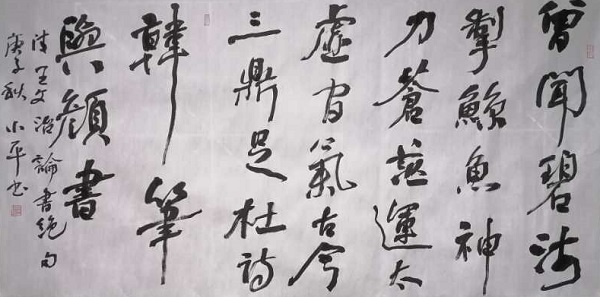 曾聞碧海
掣鯨魚神
力蒼茫運太
虛間氣古今
三鼎足杜詩
韓筆
與顏書
清王文治論書絕句
庚子秋小平书